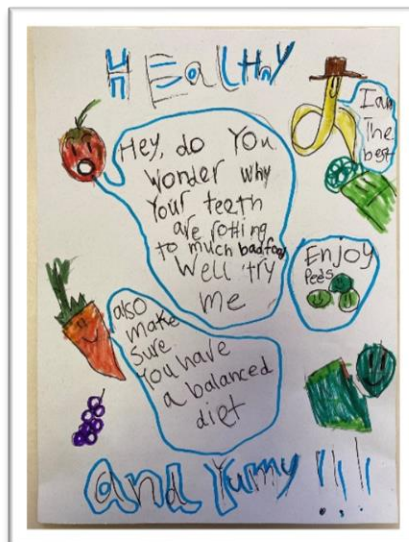 HEaLHY
Hey, do You
Wonder why
Your teeth
are rotting
to much bad food
Well try
me
I am
The
best
ENJOY
Pees
also
make
Sure
You have
a balanced
diet
And Yumy !!!!